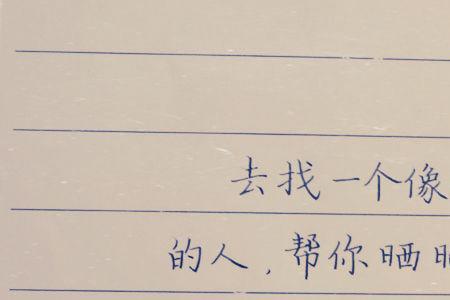 去找一个像
的人，帮你晒